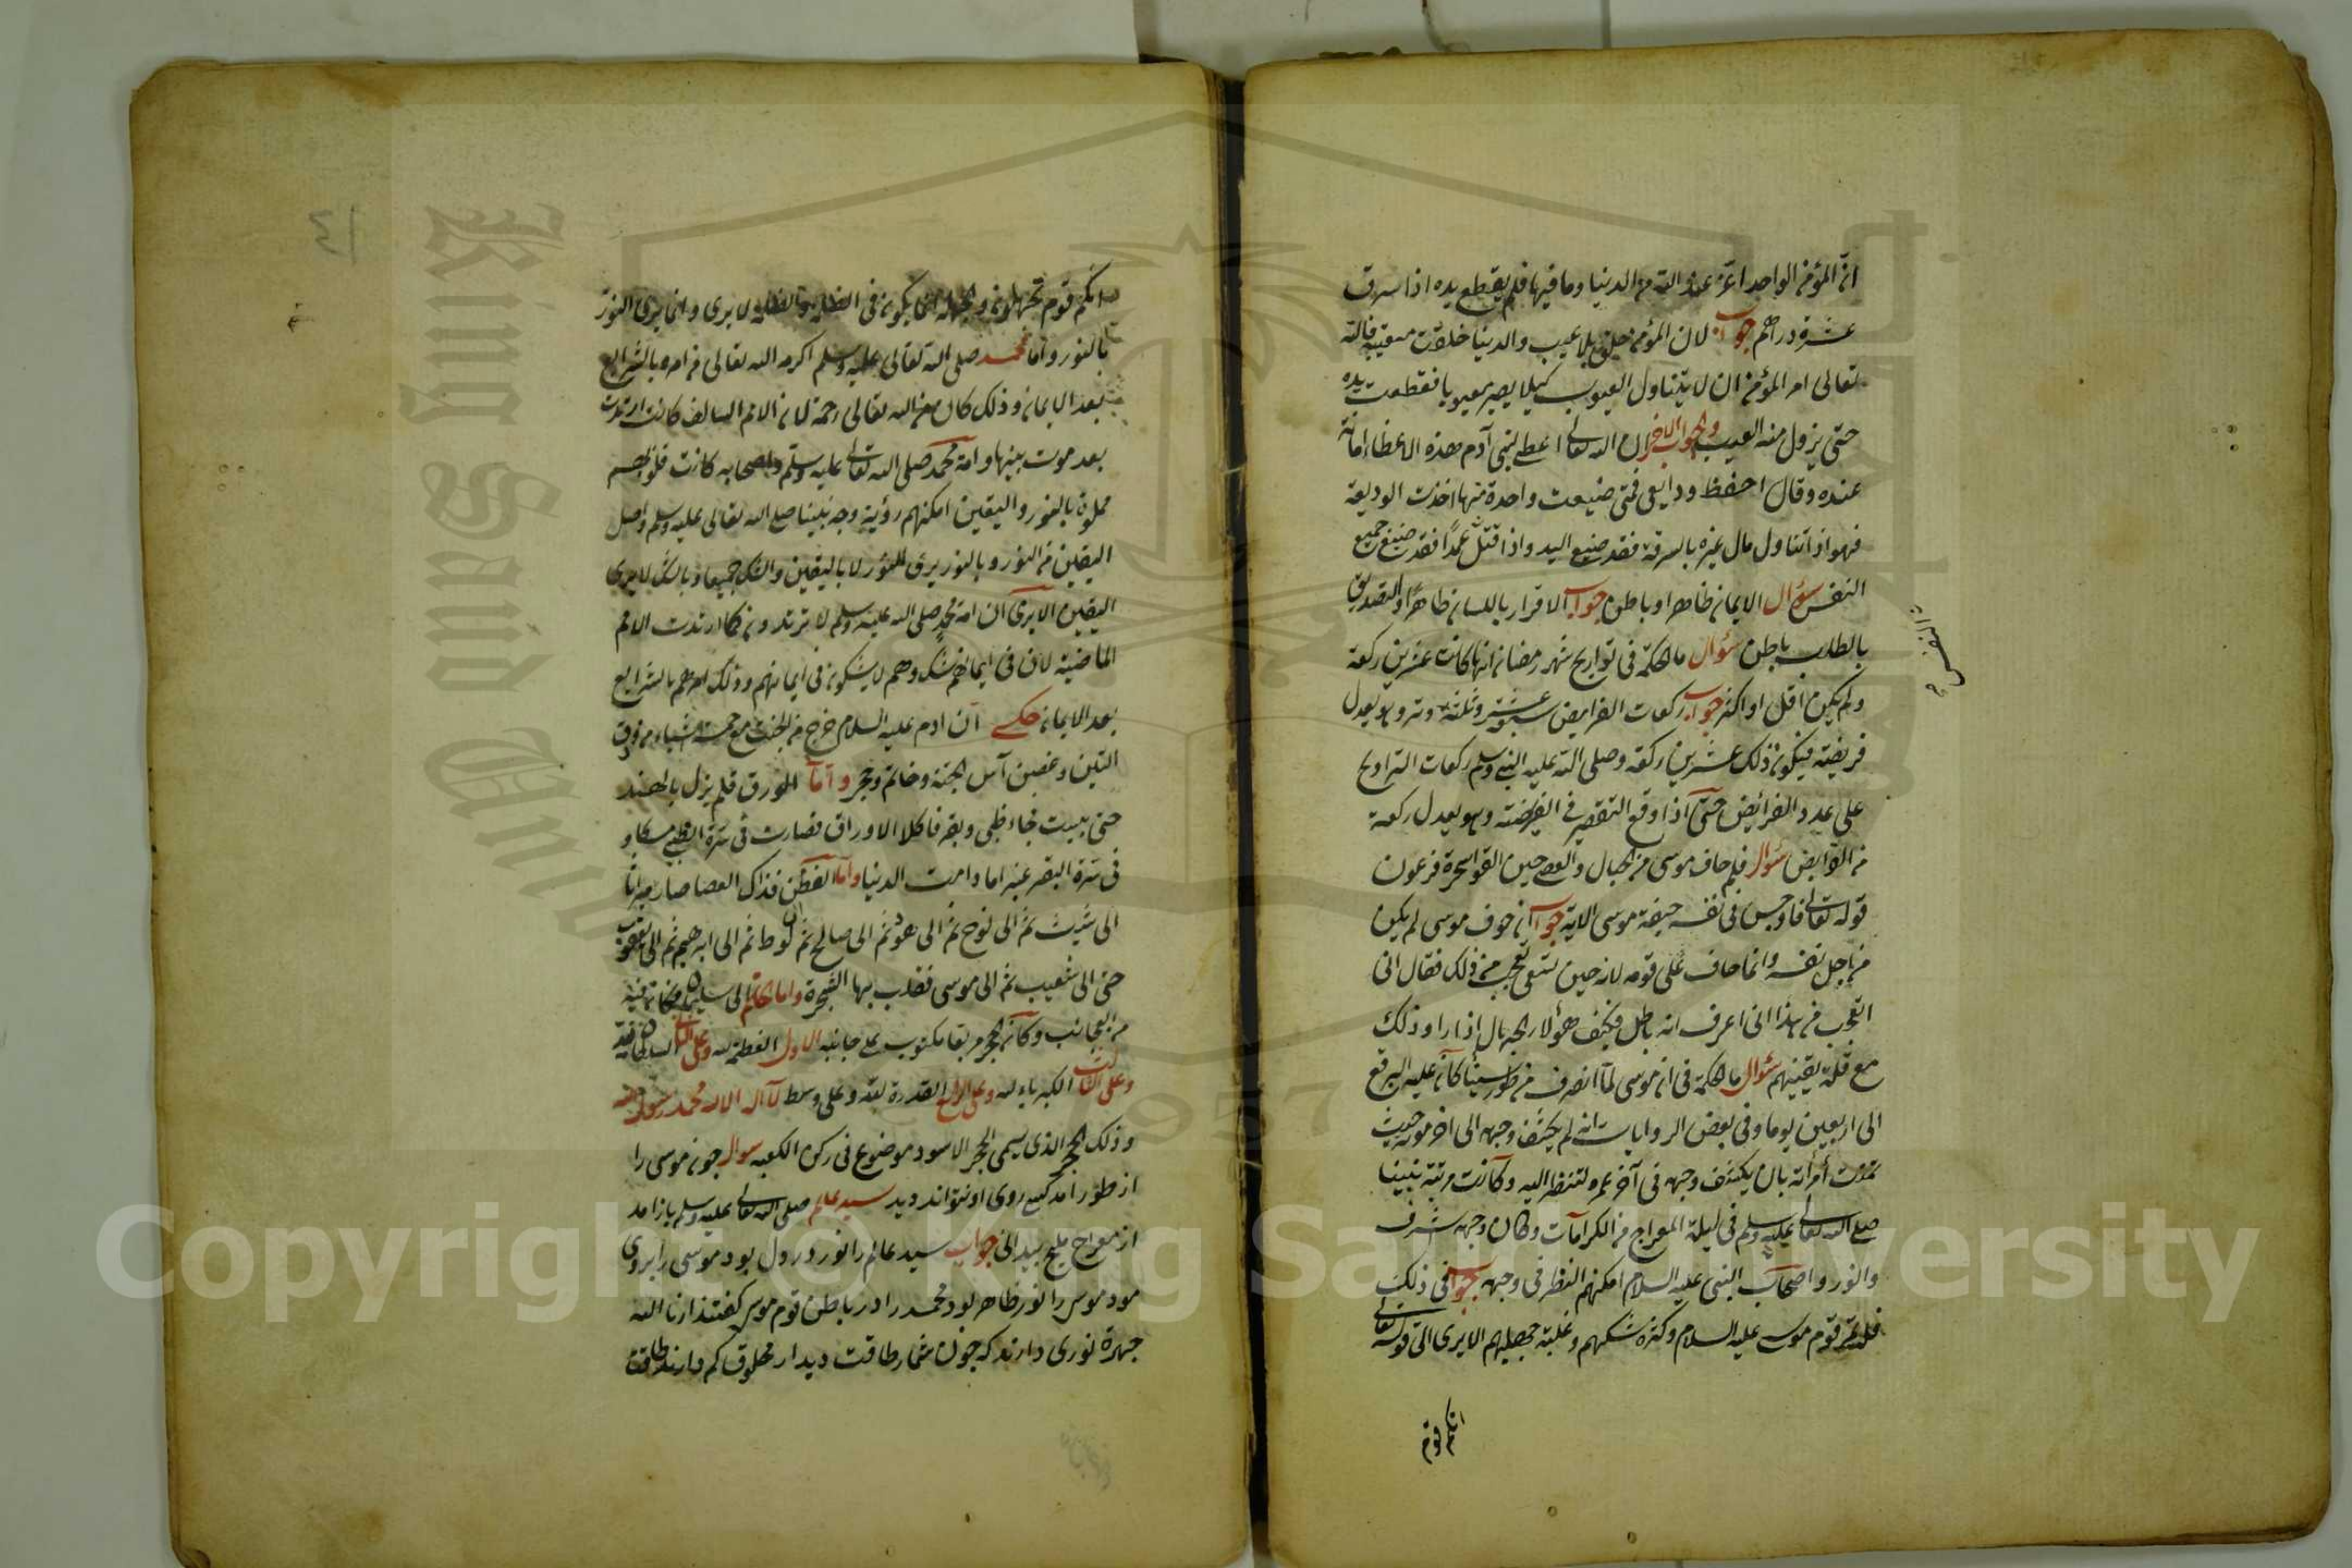 انّ المؤمن الواحد اعزّ عند الله من الدنيا وما فيها فلم يقطع يده اذا سرق
عشرة دراهم جواب لان المؤمن خلق بلا عيب والدنيا خلقت معيبة فالله
تعالى امر المؤمن ان لا يتناول العيوب كيلا يصير معيوبا فقطعت يده
حتى يزول منه العيب والجواب الاخر ان الله تعالى اعطى لبنى آدم هذه الاعضاء امانة
عنده وقال احفظ ودايعى فمتى ضيعت واحدة منها اخذت الوديعة
فهو اذا تناول مال غيره بالسرقة فقد ضيع اليد واذا قتل عمدًا فقد ضيع جميع
النفس سؤال الايمان ظاهر او باطن جواب الاقرار باللسان ظاهرًا والتصديق
بالطلب باطن سؤال ما الحكمة فى تواريح شهر رمضان انها كانت عشرين ركعة
ولم يكن اقل او اكثر جواب ركعات الفرايض سبع عشر وثلثة وتر وهو يعدل
فريضة فيكون ذلك عشرين ركعة وصلى الله عليه النبى وسلم ركعات التراويح
على عدد الفرائض حتى اذا وقع التقصير فى الفريضة وهو يعدل ركعة
من الفرايض سؤال فلم خاف موسى من الحبال والعصى حين القوا سحرة فرعون
قوله تعالى فاوجس فى نفسه خيفة موسى الاية جواب ان خوف موسى لم يكن
من اجل نفسه وانما خاف على قومه لانه حين تسعى تعجب من ذلك فقال انى
اتعجب من هذا انى اعرف انه باطل فكيف هؤلاء الجهال اذا راوا ذلك
مع قلة يقينهم سؤال ما الحكمة فى ان موسى لما انصرف من طور سينا كان عليه البرقع
الى اربعين يوما وفى بعض الروايات انه لم يكشف وجهه الى اخر موته حيث
تمنت امرأته بان يكشف وجهه فى آخر عمره لتنظر اليه وكانت مرتبة نبينا
صلى الله تعالى عليه وسلم فى ليلة المعراج من الكرامات وكان وجهه شرف
والنور واصحاب النبى عليه السلام امكنهم النظر فى وجهه جواب فى ذلك
قلة قوم موسى عليه السلام وكثرة شكهم وغلبة جهلهم الا يرى الى قوله تعالى
انكم قوم
النفس
١٤
انكم قوم تجهلون والجهلة انما يكون فى الظلمة والظلمة لا يرى وانما يرى النور
بالنور واما محمد صلى الله تعالى عليه وسلم اكرمه الله تعالى من امره بالشرايع
بعد الايمان وذلك كان من الله تعالى رحمة لان الامم السالف كانت ارتدت
بعد موت نبيها وامة محمد صلى الله تعالى عليه وسلم واصحابه كانت قلوبهم
مملوة بالنور واليقين امكنهم رؤية وجه نبينا صلى الله تعالى عليه وسلم واصل
اليقين من النور وبالنور يرى النور لا باليقين والشك جميعا وبالشك لا يرى
اليقين الا يرى ان امة محمد صلى الله عليه وسلم لا ترتدون كما ارتدت الامم
الماضية لان فى ايمانهم شك وهم لا يشكون فى ايمانهم وذلك امرهم بالشرايع
بعد الايمان حكى ان ادم عليه السلام خرج من الجنة مع خمسة اشياء من ورق
التين وغصن آس الجنة وخاتم وحجر واما الورق فلم يزل بالهند
حتى يبست فجاء ظبى وبقر فاكلا الاوراق فصارت فى سرة الظبى مسكا و
فى سرة البقر عنبرا ما دامت الدنيا واما الغصن فذاك العصا صار ميراثا
الى شيث ثم الى نوح ثم الى هود ثم الى صالح ثم الى لوط ثم الى ابرهيم ثم الى يعقوب
حتى الى شعيب ثم الى موسى فغلب بها السحرة واما الخاتم الى سليمان
من العجائب وكان الحجر مربعا مكتوب على جانبه الاول العظمة لله وعلى الثانى السلطان لله
وعلى الثالث الكبرياء لله وعلى الرابع القدرة لله وعلى وسط لا اله الا الله محمد رسول الله
وذلك الحجر الذى يسمى الحجر الاسود موضوع فى ركن الكعبه سوال چون موسى را
از طور امد كسى روى او نتواند ديد سيد عالم صلى الله تعالى عليه وسلم باز امد
از معراج جواب سيد عالم را نور در دل بود موسى را بروى
موسى را نور ظاهر بود محمد را در باطن قوم موسى گفتند ارنا الله
جهرة نورى دارند كه چون شما طاقت ديدار مخلوق كم دارند طاقت
Copyright © King Saud University
King Saud University
1957